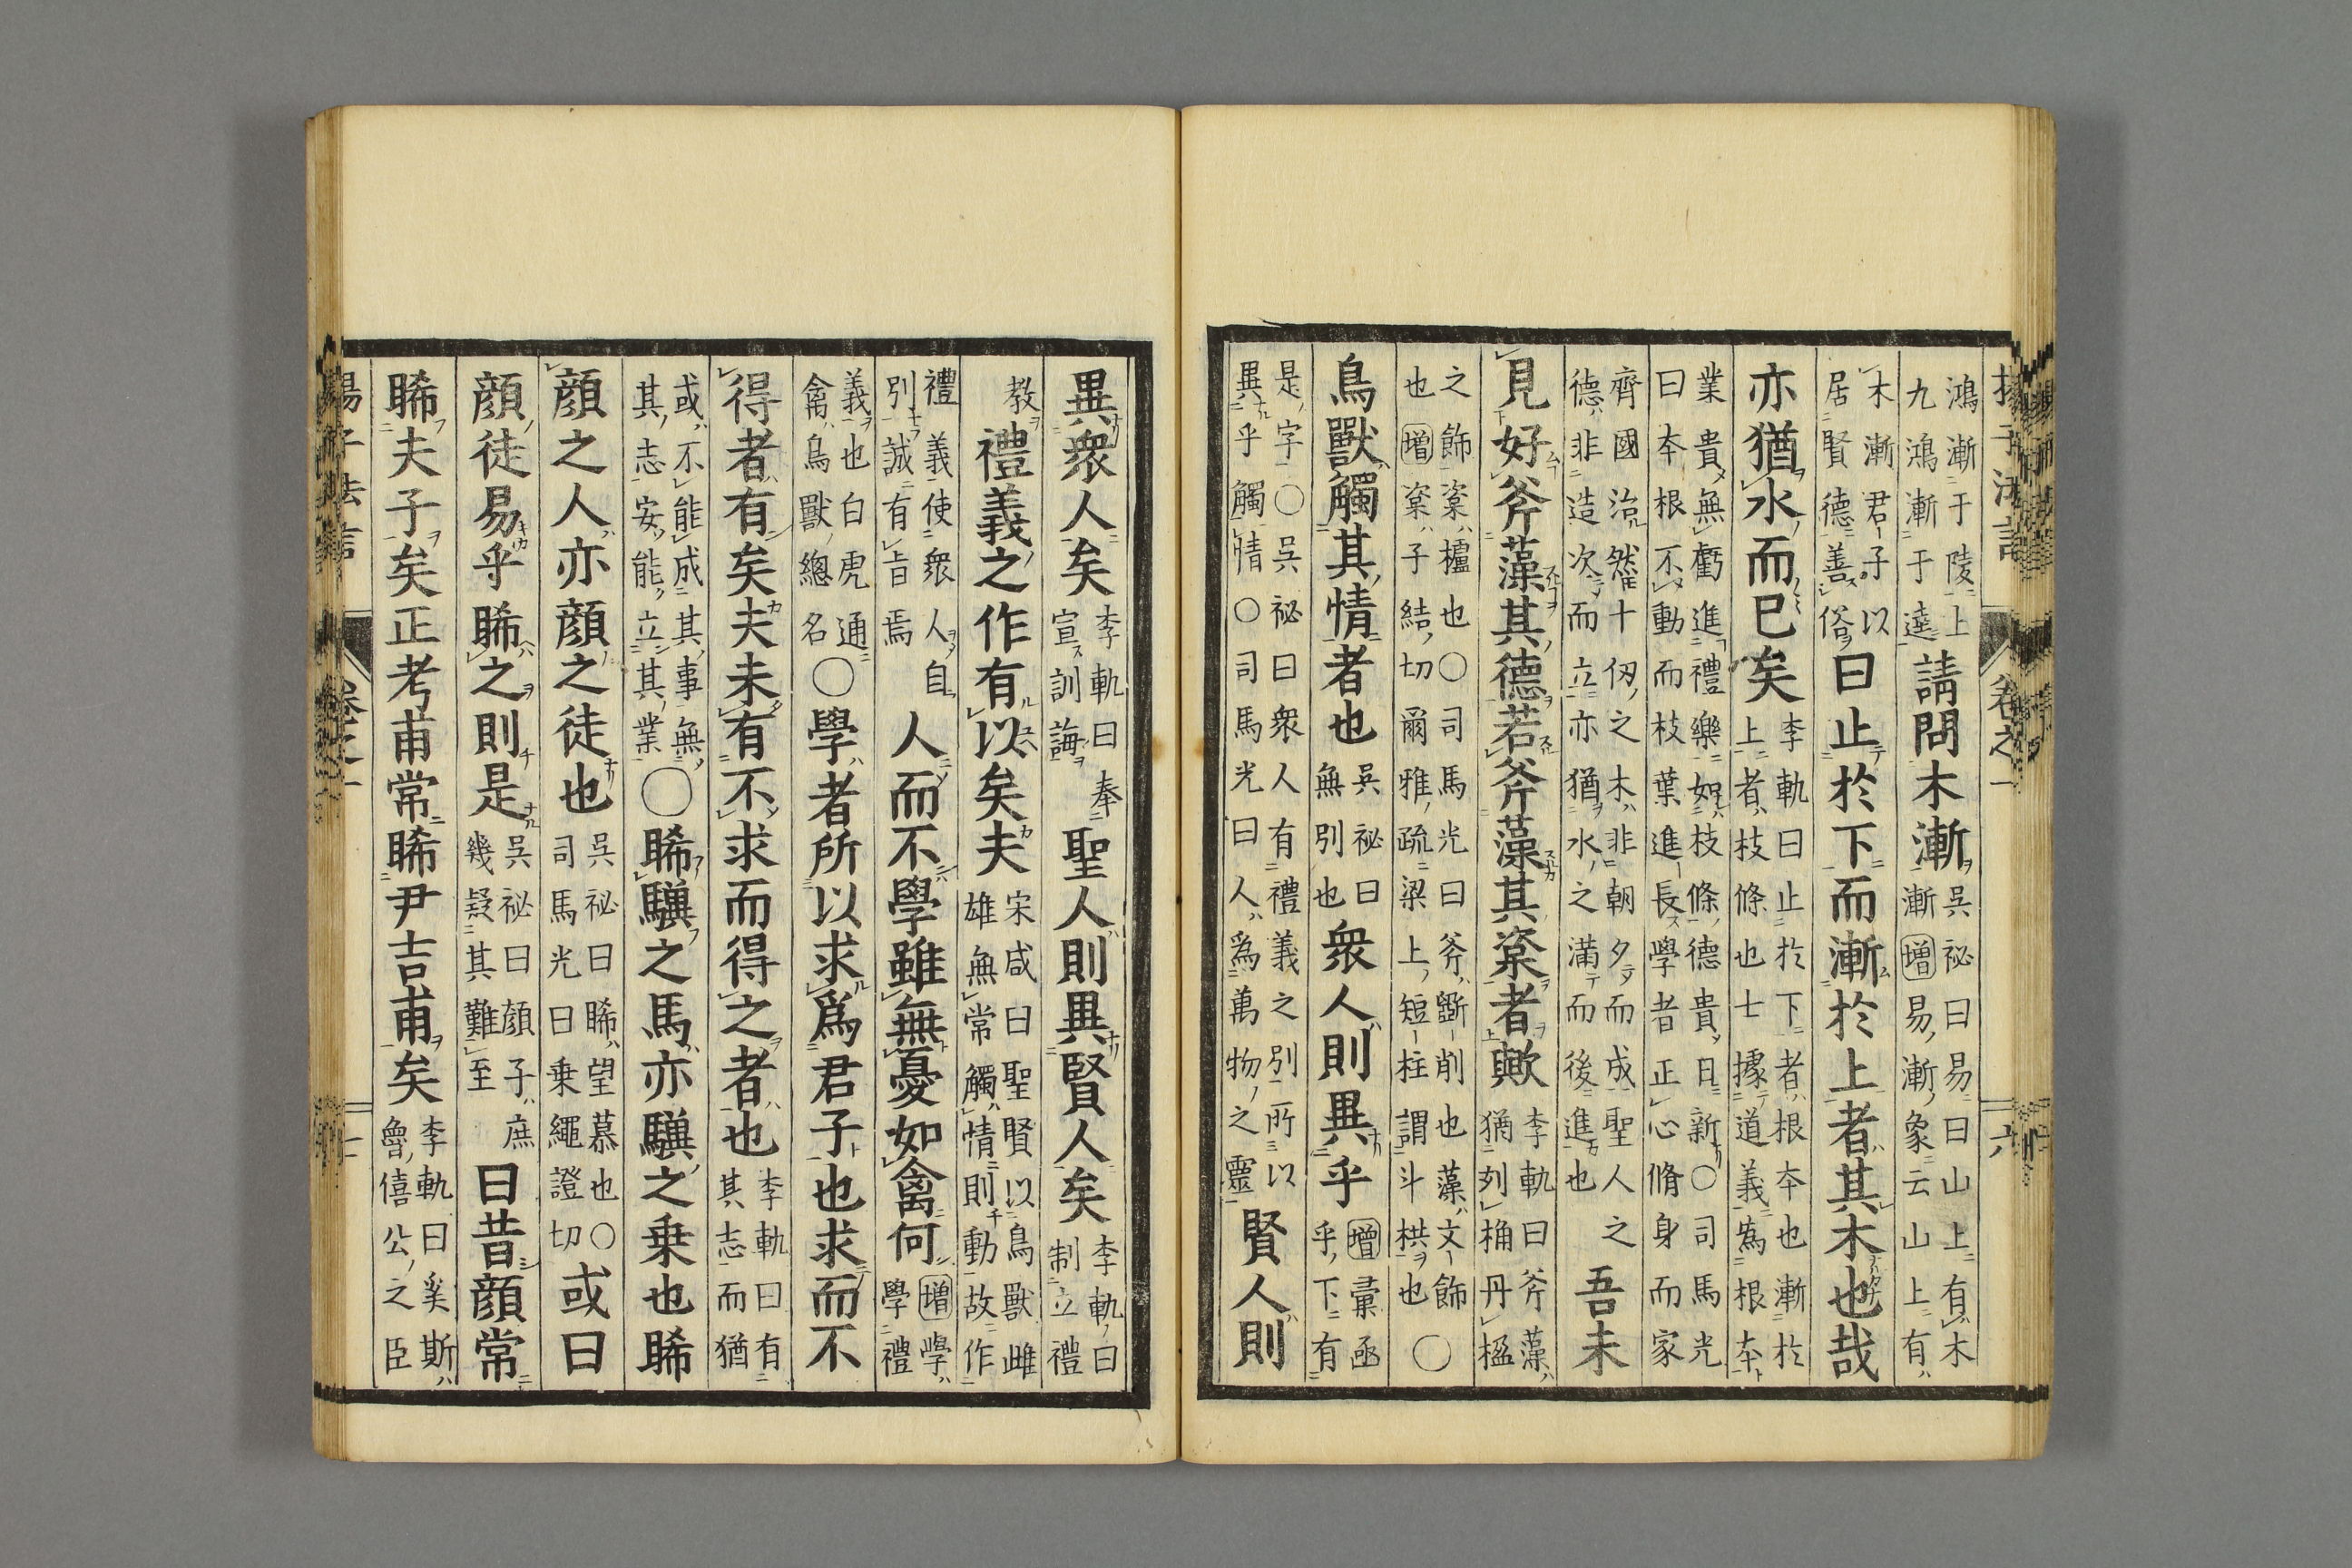 卷之一 六
鴻漸于陵上九鴻漸于逵請問木漸吳祕曰易曰山上有木漸增易漸象云山上有
木漸君子以居賢德善俗曰止於下而漸於上者其木也哉
亦猶水而已矣李軌曰止於下者根本也漸於上者枝條也士據道義為根本
業貴無虧進禮樂如枝條德貴日新○司馬光曰本根不動而枝葉進長學者正心脩身而家
齊國治然十仭之木非朝夕而成聖人之德非造次而立亦猶水之滿而後進也吾未
見好斧藻其德若斧藻其楶者歟李軌曰斧藻猶列桷丹楹
之飾楶櫨也○司馬光曰斧斲削也藻文飾也增楶子結切爾雅疏梁上短柱謂斗栱也○
鳥獸觸其情者也吳祕曰無別也衆人則異乎增彙函乎下有
是字○吳祕曰衆人有禮義之別所以異乎觸情○司馬光曰人爲萬物之靈賢人則
異衆人矣李軌曰奉宣訓誨聖人則異賢人矣李軌曰制立禮
教禮義之作有以矣夫宋咸曰聖賢以鳥獸雌雄無常觸情則動故作
禮義使衆人自別誠有旨焉人而不學雖無憂如禽何增學學禮
義也白虎通禽鳥獸總名○學者所以求爲君子也求而不
得者有矣夫未有不求而得之者也李軌曰有其志而猶
或不能成其事無其志安能立其業○睎驥之馬亦驥之乗也睎
顔之人亦顔之徒也吳祕曰睎望慕也○司馬光曰乗繩證切或曰
顔徒易乎睎之則是吳祕曰顔子庶幾疑其難至曰昔顔常
睎夫子矣正考甫常睎尹吉甫矣李軌曰奚斯魯僖公之臣